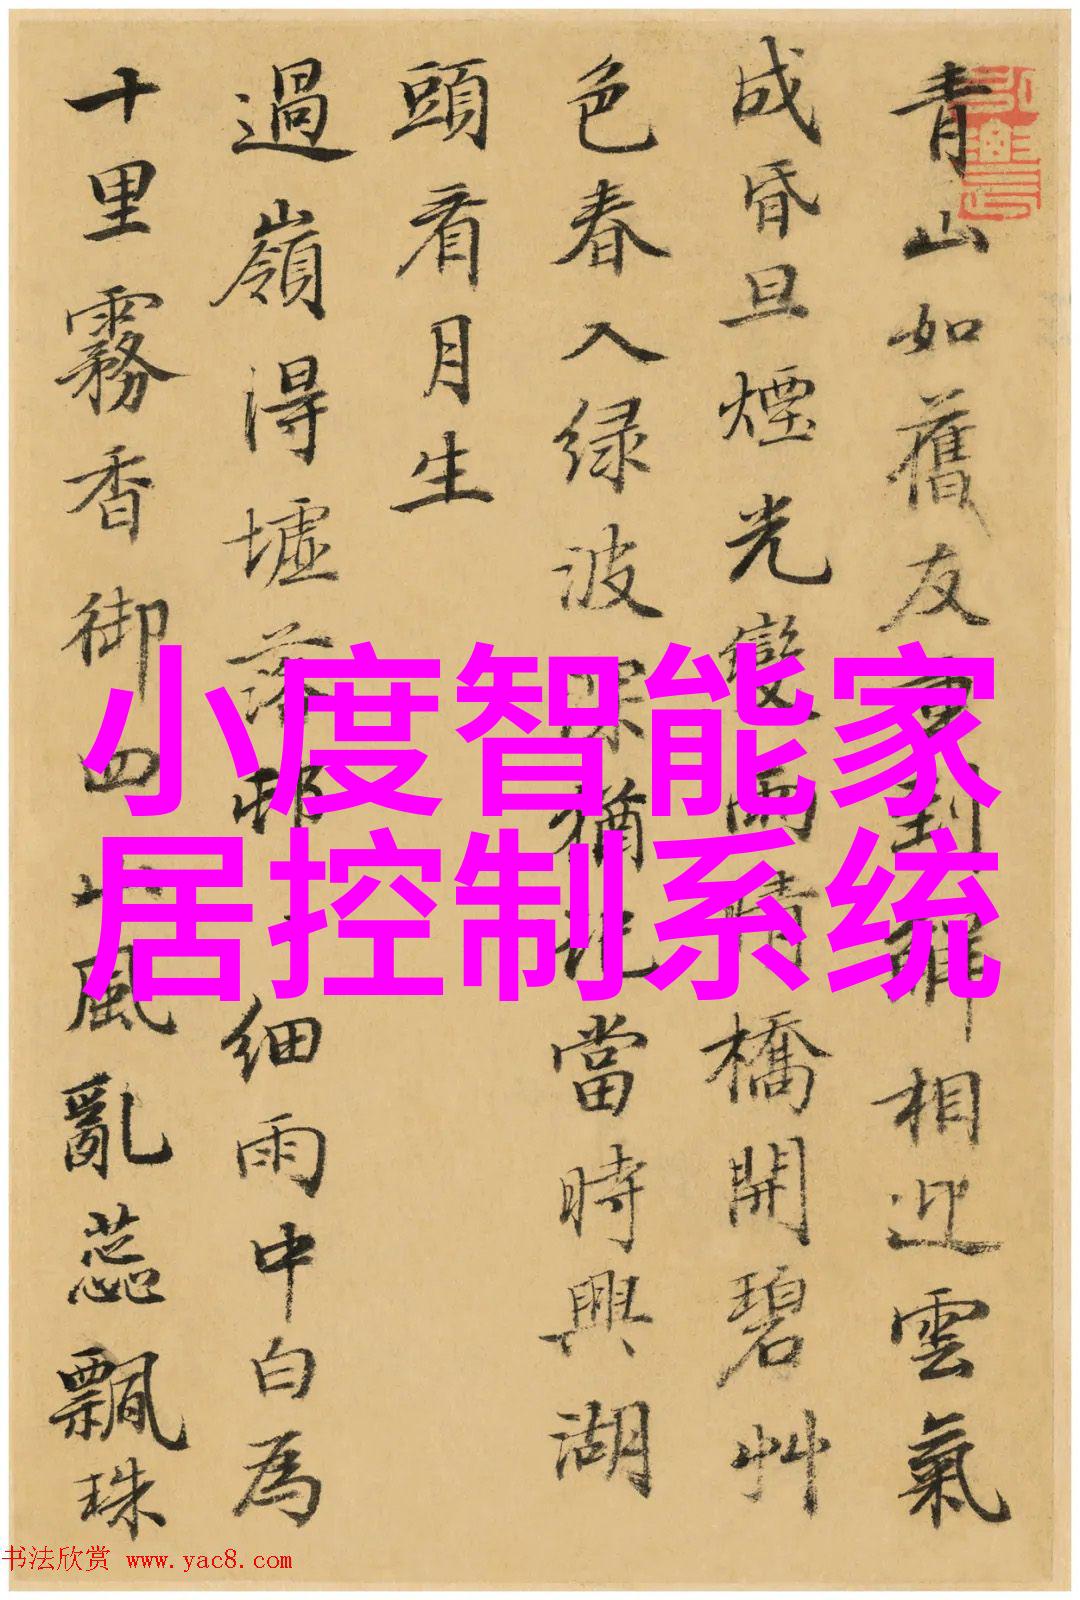 青山如舊友相迎雲氣
成昏旦煙光變雨晴橋開碧艸
色春入绿波深猶記當時興湖
頭看月生
過嶺得墟落邨細雨中白為
十里霧香御四山風亂蕊飄珠
小度智能家
居控制系统
书法欣赏 www.yac8.com